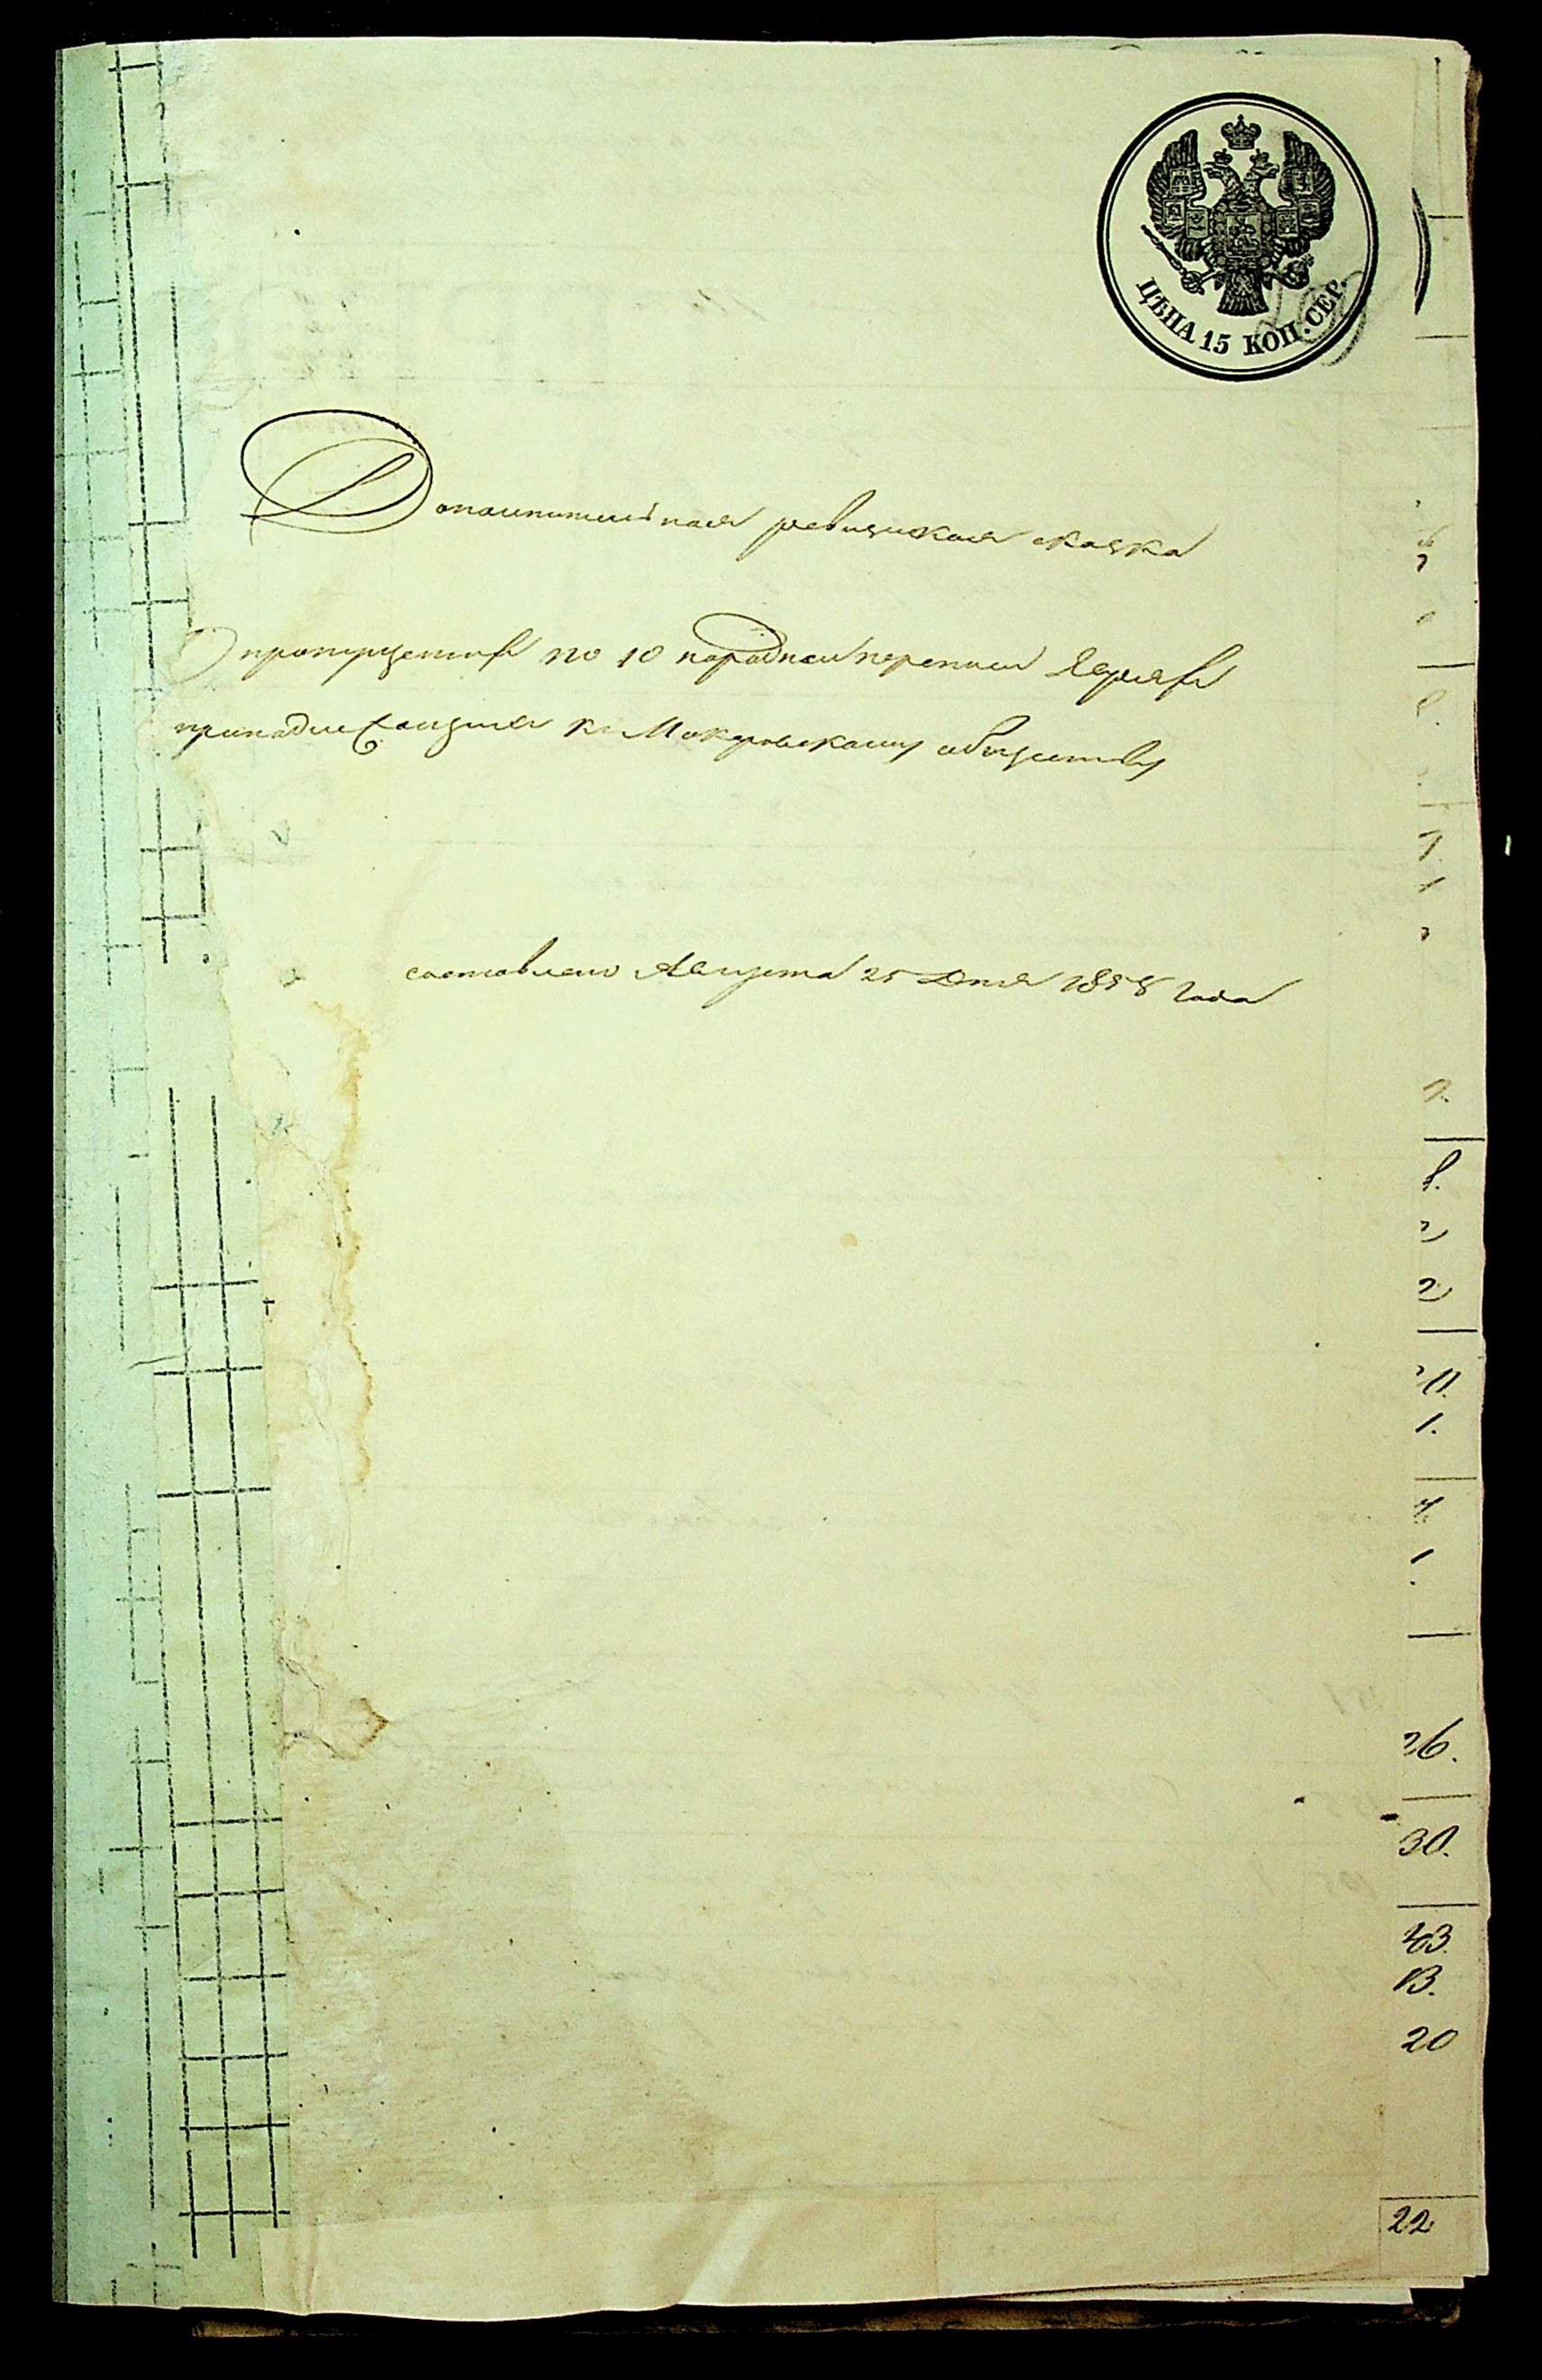 ЦѢНА 15 КОП. СЕР.
Дополнительная ревизская сказка
О пропущенных по 10 народной переписи Евреях
принадлежащих къ Мокровскому обществу
составлено Августа 25 дня 1858 года
26.
30.
43.
13.
20
22